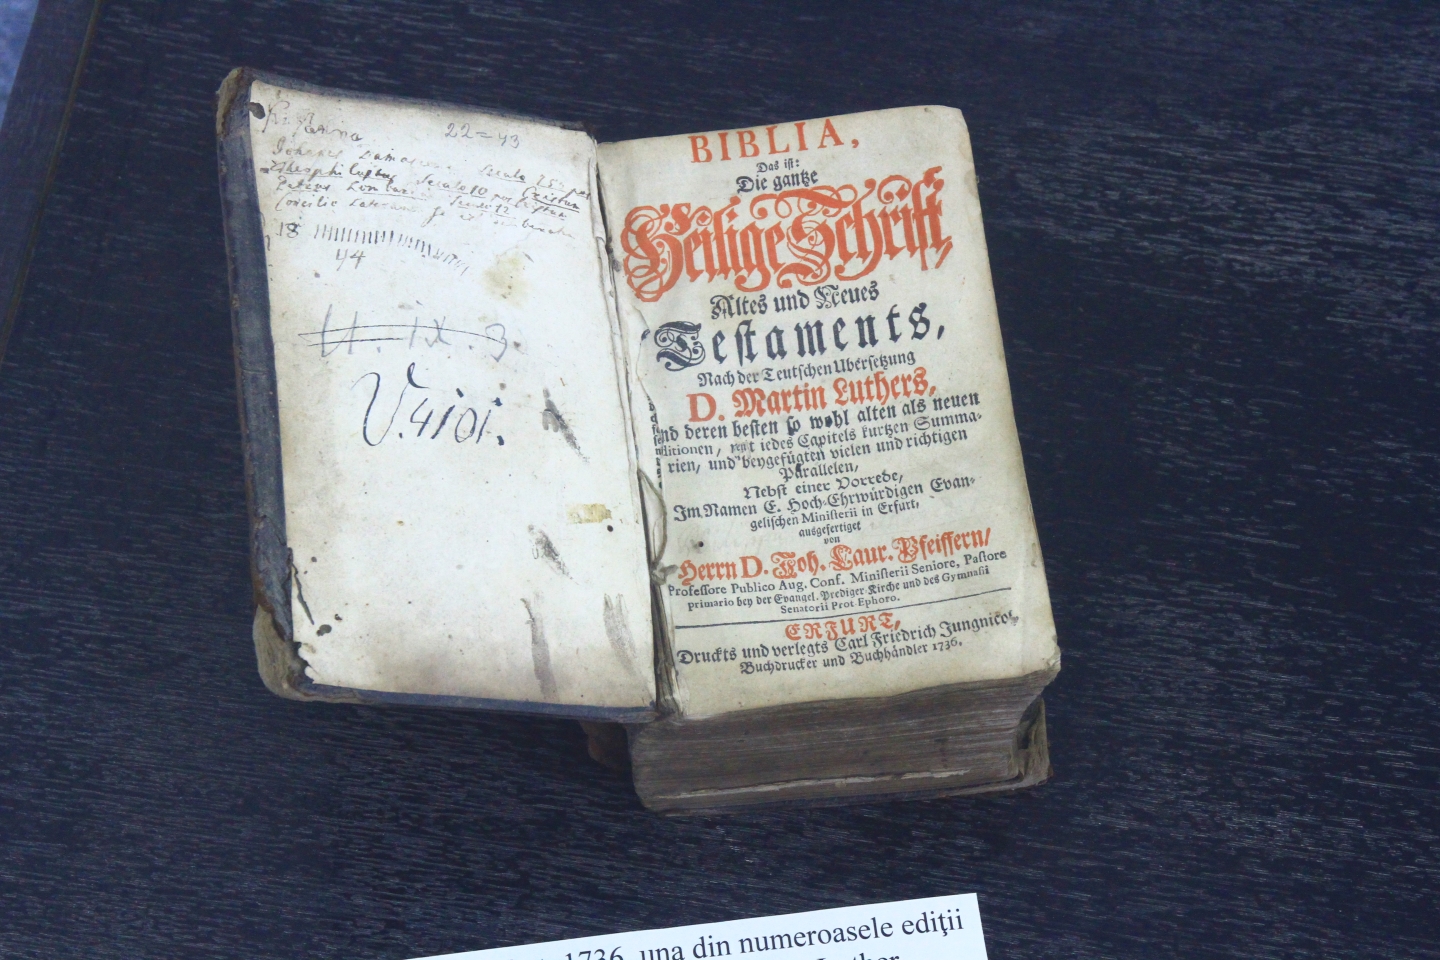 22=43
Johanes Damascen Seculo
Theophilaktus Seculo 10 post Cristum
Petrus Lombard Seculo 12
Concilio Lateran
18
44
U. IX. 3
V. 4101.
BIBLIA,
Das ist:
Die gantze
Heilige Schrift,
Altes und Neues
Testaments,
Nach der Teutschen Ubersetzung
D. Martin Luthers,
und deren besten so wohl alten als neuen
Editionen, mit iedes Capitels kurtzen Summa-
rien, und beygefügten vielen und richtigen
Parallelen,
Nebst einer Vorrede,
Im Namen E. Hoch-Ehrwürdigen Evan-
gelischen Ministerii in Erfurt,
ausgefertiget
von
Herrn D. Joh. Laur. Pfeiffern/
Professore Publico Aug. Conf. Ministerii Seniore, Pastore
primario bey der Evangel. Prediger-Kirche und des Gymnasii
Senatorii Prot Ephoro.
ERFURT,
Druckts und verlegts Carl Friedrich Jungnicol,
Buchdrucker und Buchhändler 1736.
1736, una din numeroasele ediţii
Luther